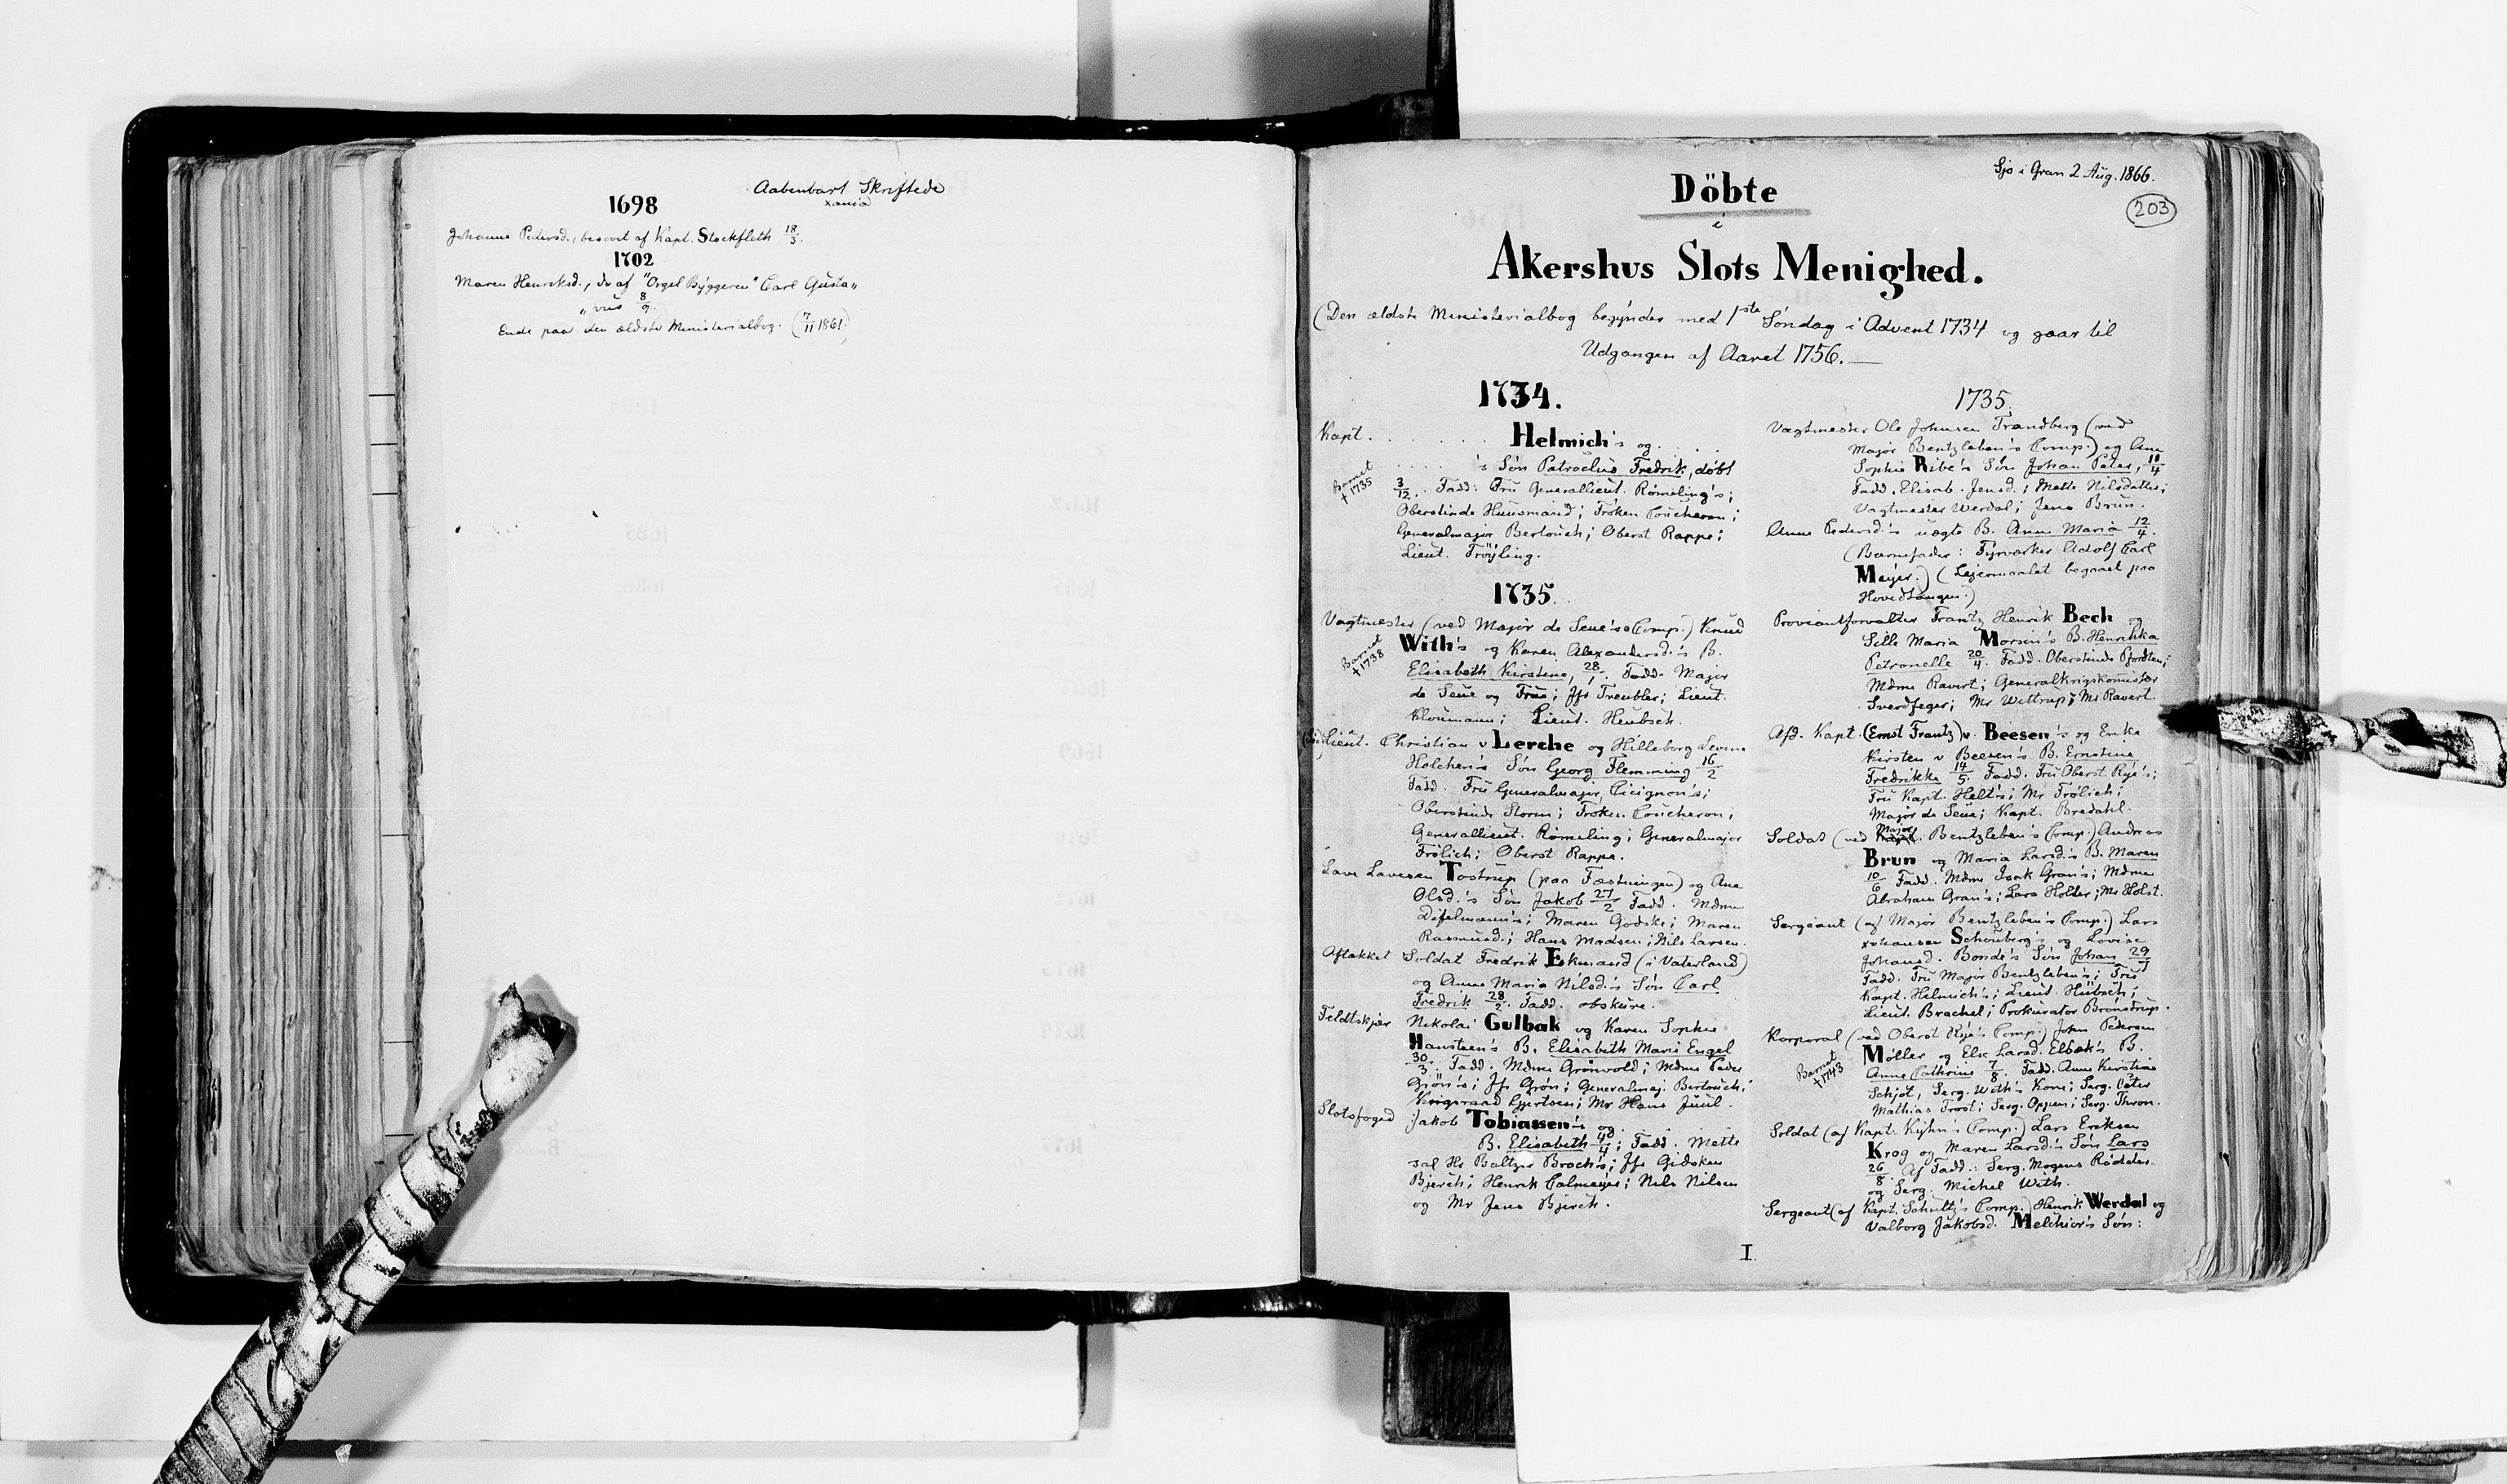 Aabenbart Skriftede
xania
1698
Johanne Pedersd., besovet af Kapt. Stockfleth 18/3.
1702
Maren Henriksd., do af "Orgel Byggeren" Carl Gusta„
„vus 8/9.
Ende paa den ældste Ministerialbog. (7/11 1861)
Sjo i Gran 2 Aug. 1866.
203
Döbte
i
Akershus Slots Menighed.
(Den ældste Ministerialbog begynder med 1ste Søndag i Advent 1734 og gaar til
Udgangen af Aaret 1756.
1734.
Kapt. . . . . . . . Helmich's og . . . .
. . . . . 's Søn Patroclus Fredrik, døbt
Barnet
† 1735
3/12. Fadd: Fru Generallieut. Römeling's;
Oberstinde Huusmand; Frøken Coucheron;
Generalmajor Bertouch; Oberst Rappe;
Lieut. Fröyling.
1735.
Vagtmester (ved Major de Seue's Comp.) Knud
With's og Karen Alexandersd.'s B.
Barnet
† 1738
Elisabeth Kirstine, 28/1. Fadd. Major
de Seue og Frue; Jfr Treubler; Lieut.
Kloumann; Lieut. Heubsch.
Lieut. Christian v Lerche og Hilleborg Levine
Holchen's Søn Georg Flemming 16/2
Fadd. Fru Generalmajor Cicignon's;
Oberstinde Storm; Frøken Coucheron;
Generallieut. Römeling; Generalmajor
Frölich; Oberst Rappe.
Lave Lavesen Tostrup (paa Fæstningen) og Ane
Olsd.'s Søn Jakob 27/2 Fadd. Mdme
Difelmann's; Maren Godske; Maren
Rasmusd.; Hans Madsen; Nils Larsen.
Aftakket Soldat Fredrik Ekmand (i Vaterland)
og Anne Maria Nilsd.'s Søn Carl
Fredrik 28/2. Fadd. obskure.
Feldtskjær Nikolai Gulbak og Karen Sophie
Hansteen's B. Elisabeth Marie Engel
30/3. Fadd. Mdme Grönvold; Mdme Peder
Grön's; Jfr Grøn; Generalmaj Bertouch;
Krigsraad Gjertsen; Mr Hans Juul.
Slotsfoged Jakob Tobiassen's og . . .
B. Elisabeth 4/4; Fadd. Mette
sal Hr Baltzer Broch's; Jfr Gidsken
Bjerch; Henrik Calmeyer; Nils Nilsen
og Mr Jens Bjerch.
1735.
Vagtmester Ole Johnsen Trandberg (ved
Major Bentzleben's Comp.) og Ane
Sophie Ribe's Søn Johan Peter, 10/4
Fadd. Elisab. Jensd.; Mette Nilsdatter;
Vagtmester Werdal; Jens Brun.
Anne Pedersd.'s uægte B. Anne Maria 12/4.
(Barnefader: Fyrværker Adolf Carl
Meyer.) (Lejermaalet begaaet paa
Hovedtangen.)
Proviantforvalter Frantz Henrik Bech og
Sille Maria Morsin's B. Henrikka
Petronelle 20/4. Fadd. Oberstinde Pfordten;
Mdme Ravert; Generalkrigskomissær
Sverdfeger; Mr Wittrup; Mr Ravert.
Afd. Kapt. (Ernst Frantz) v Beesen's og Erika
Kirsten v Beesen's B. Ernstine
Fredrikke 14/5. Fadd. Fru Oberst Rye's;
Fru Kapt. Helt's; Mr Frölich;
Major de Seue; Kapt. Bredahl.
Soldat (ved Major Bentzleben's Comp.) Andreas
Brun og Maria Larsd.'s B. Maren
10/6 Fadd. Mdme Isak Gran's; Mdme
Abraham Gran's; Lars Holter; Mr Holst.
Sergeant (af Major Bentzleben's Comp.) Lars
Johansen Schouberg's og Lovise
Johansd. Bonde's Søn Johan 29/
Fadd. Fru Major Bentzleben's; Fru
Kapt. Helmich's; Lieut. Hübsch;
Lieut. Brachel; Prokurator Brönstrup.
Korporal (ved Oberst Rye's Comp.) John Pedersen
Møller og Else Larsd. Elbæk's B.
Barnet
† 1743
Anne Cathrine 7/8. Fadd. Anne Kirstine
Schjöt, Serg. With's Kone; Serg. Peter
Mathias Trost; Serg. Oppen; Serg. Thron.
Soldat (af Kapt. Kyhn's Comp.) Lars Eriksen
Krog og Maren Larsd.'s Søn Lars
26/8. Af Fadd.: Serg. Mogens Rödder
og Serg. Michel With.
Sergeant (af Kapt. Schultz's Comp.) Henrik Werdal og
Valborg Jakobsd. Melchior's Søn:
I.